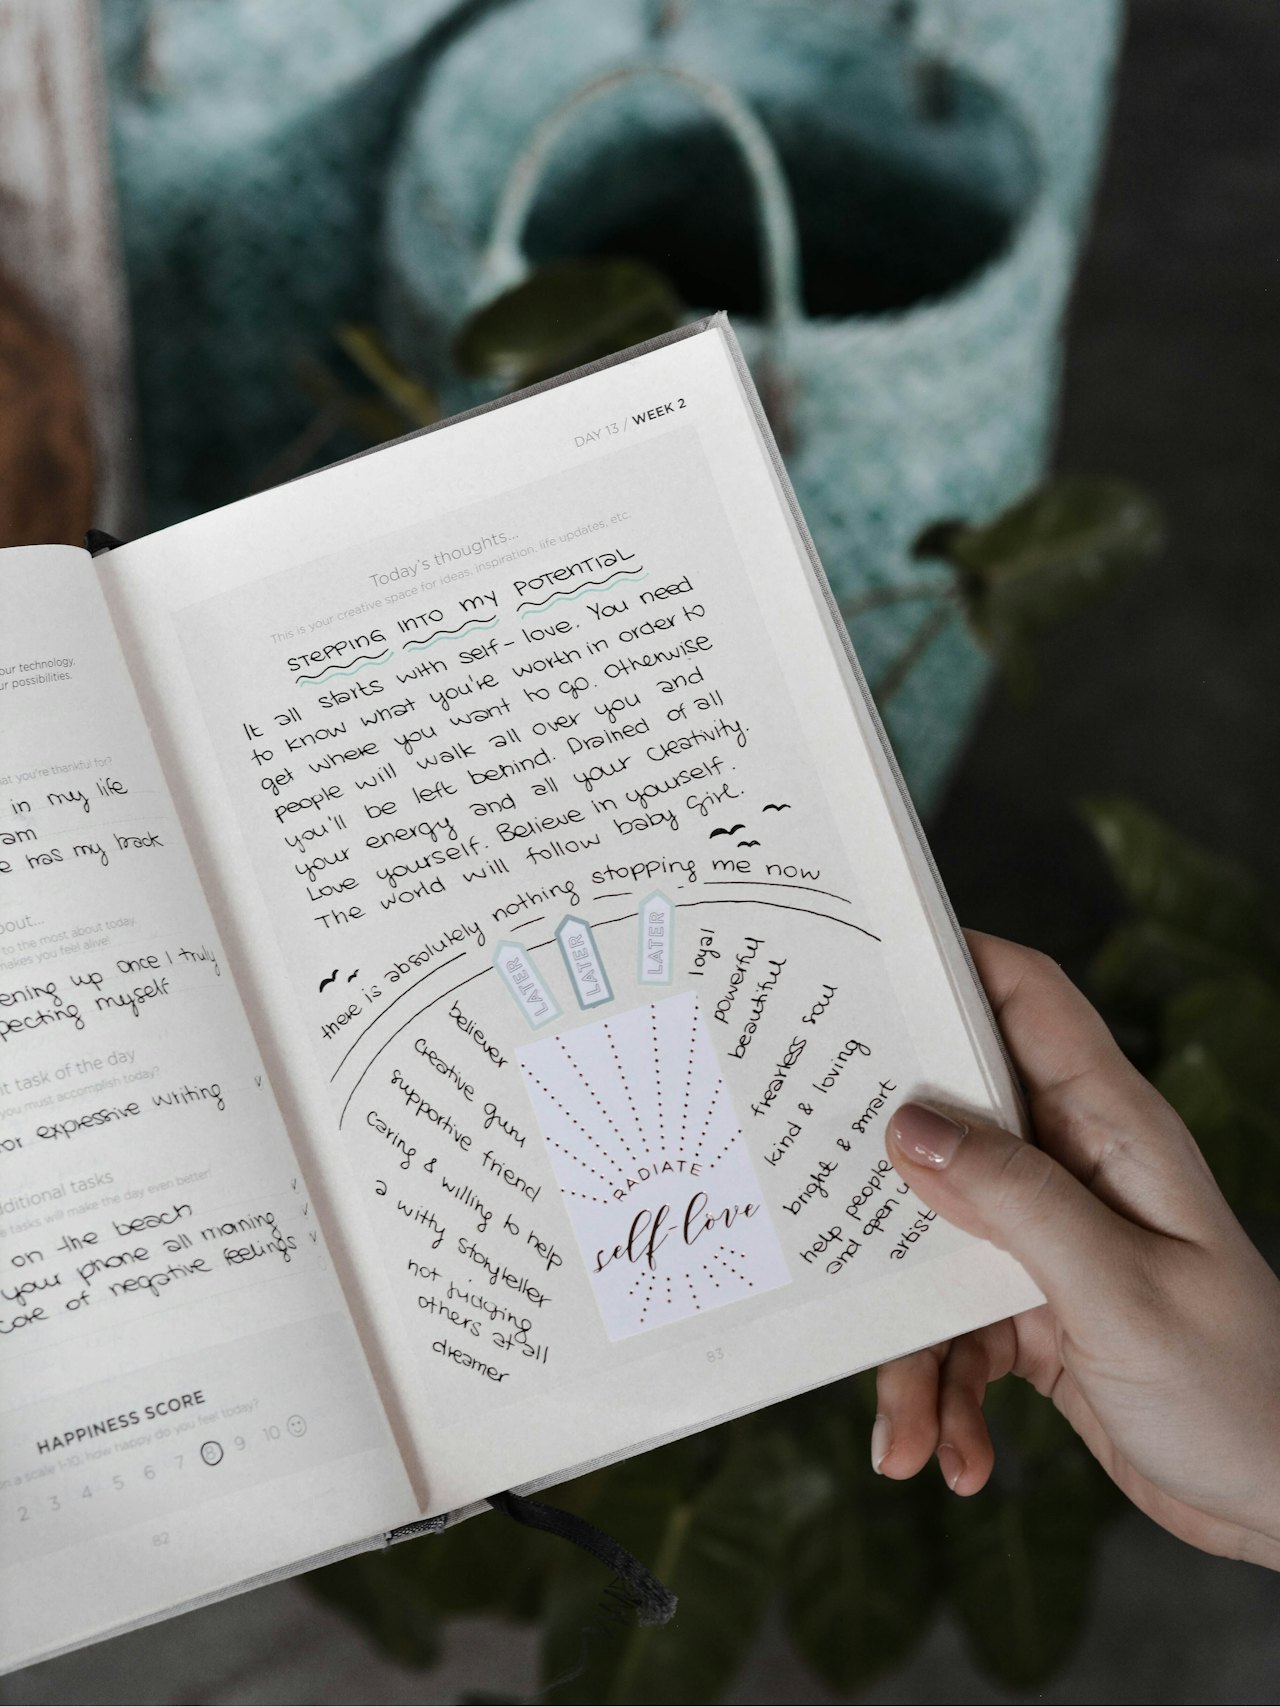 our technology,
ur possibilities.
at you're thankful for?
in my life
am
e has my back
bout...
to the most about today.
makes you feel alive!
ening up once I truly
pecting myself
nt task of the day
you must accomplish today?
for expressive writing
dditional tasks
e tasks will make the day even better!
on the beach
your phone all morning
care of negative feelings
HAPPINESS SCORE
on a scale 1-10, how happy do you feel today?
2 3 4 5 6 7 8 9 10
82
DAY 13 / WEEK 2
Today's thoughts...
This is your creative space for ideas, inspiration, life updates, etc.
STEPPING INTO MY POTENTIAL
It all starts with self-love. You need
to know what you're worth in order to
get where you want to go. Otherwise
people will walk all over you and
you'll be left behind. Drained of all
your energy and all your creativity.
Love yourself. Believe in yourself.
The world will follow baby girl.
there is absolutely nothing stopping me now
LATER
LATER
LATER
believer
creative guru
supportive friend
caring & willing to help
a witty storyteller
not judging
others at all
dreamer
RADIATE
self-love
loyal
powerful
beautiful
fearless soul
kind & loving
bright & smart
help people
and open u
artist
83